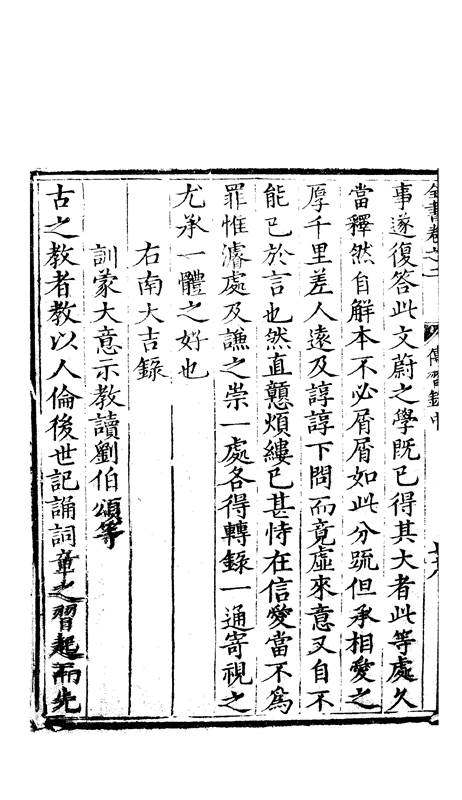 全書卷之二 傳習錄中
事遂復答此文蔚之學既已得其大者此等處久
當釋然自解本不必屑屑如此分疏但承相愛之
厚千里差人遠及諄諄下問而竟虛來意又自不
能已於言也然直戇煩縷已甚恃在信愛當不爲
罪惟濬處及謙之崇一處各得轉錄一通寄視之
尤承一體之好也
右南大吉錄
訓蒙大意示教讀劉伯頌等
古之教者教以人倫後世記誦詞章之習起而先